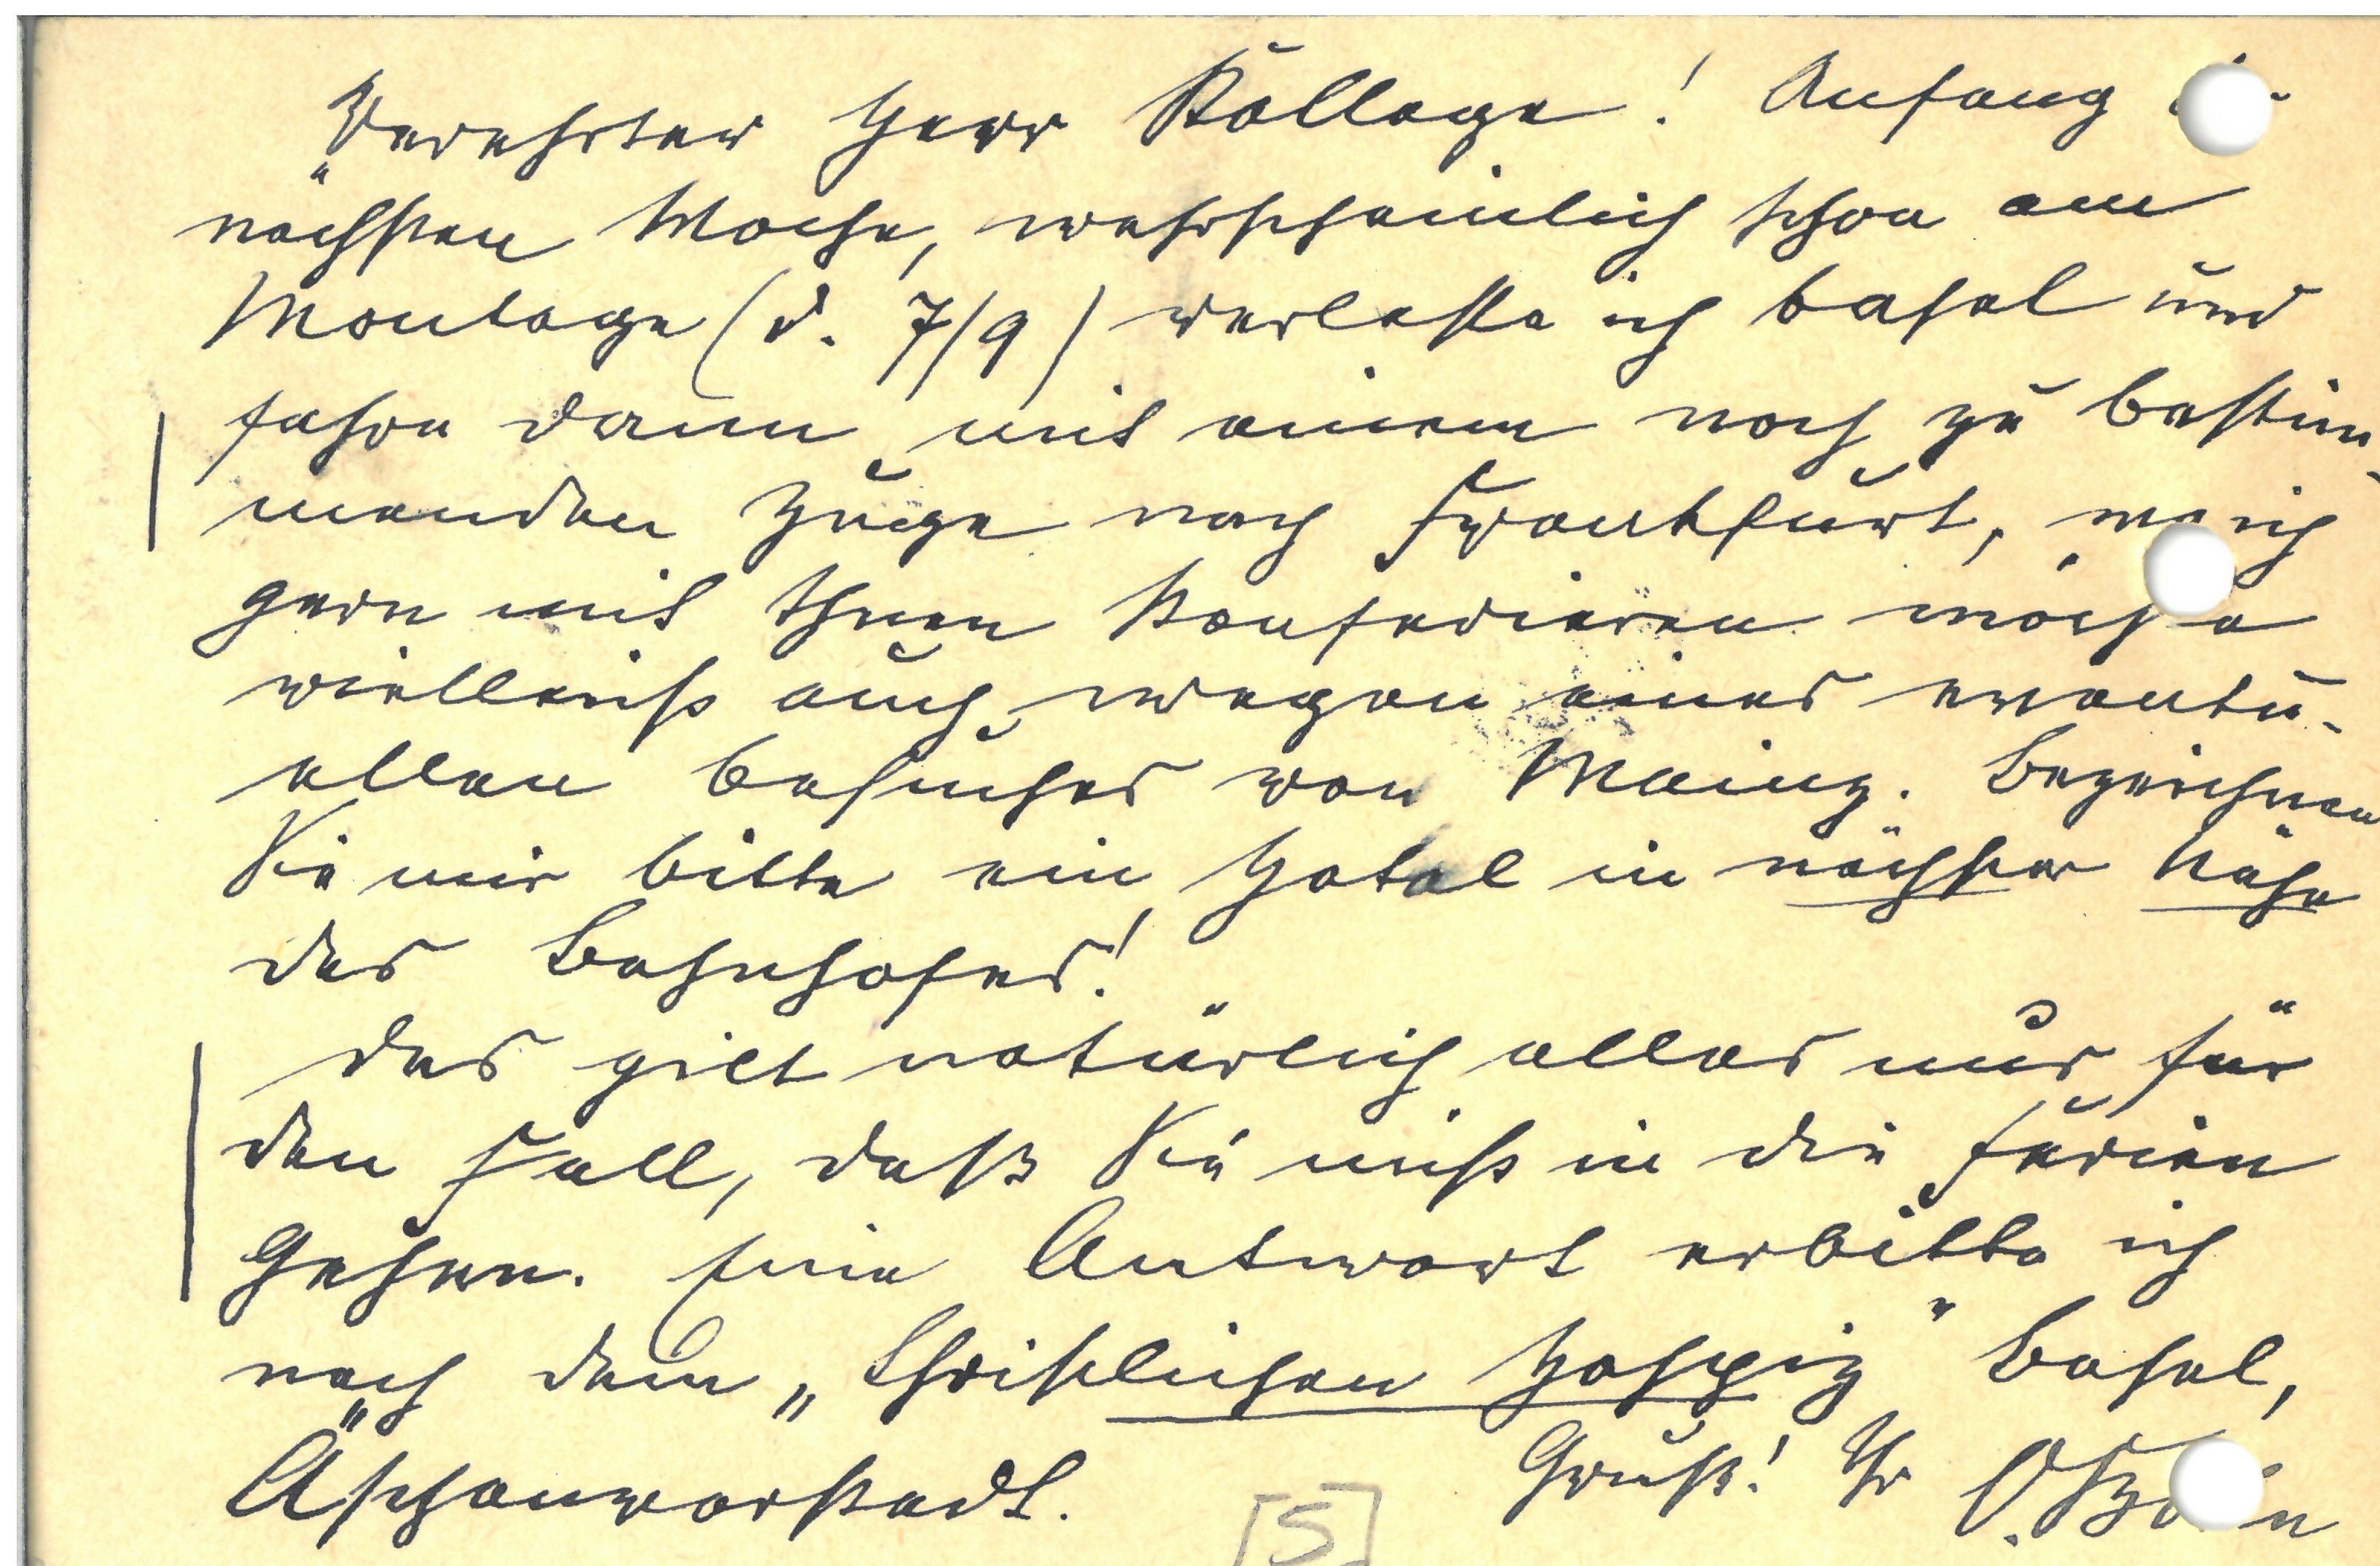 Verehrter Herr Kollege! Anfang
nächsten Woche, wahrscheinlich schon am
Montage (d. 7/9) verlasse ich Basel und
fahre dann mit einem noch zu bestim-
menden Zuge nach Frankfurt, wo ich
gern mit Ihnen konferieren möchte
vielleicht auch wegen eines eventu-
ellen Besuches von Mainz. Bezeichnen
Sie mir bitte ein Hotel in nächster Nähe
des Bahnhofes!
Das gilt natürlich alles nur für
den Fall, daß Sie nicht in die Ferien
gehen. Eine Antwort erbitte ich
nach dem „Christlichen Hospiz" Basel,
Äschenvorstadt. Gruß! Ihr
[S]